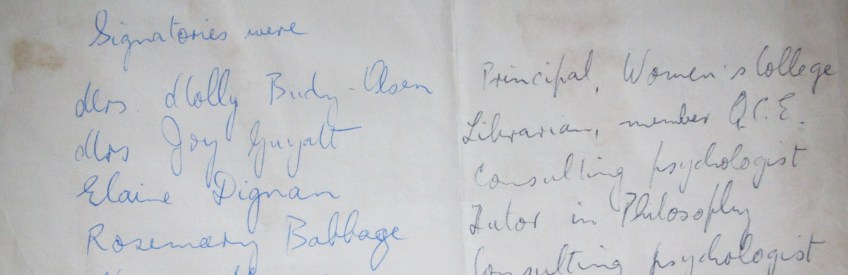 Signatories were
Mrs. Molly Budy-Olsen Principal, Women's College
Mrs Joy Guyatt Librarian, member Q.C.E.
Elaine Dignan Consulting psychologist
Rosemary Babbage Tutor in Philosophy
Consulting psychologist